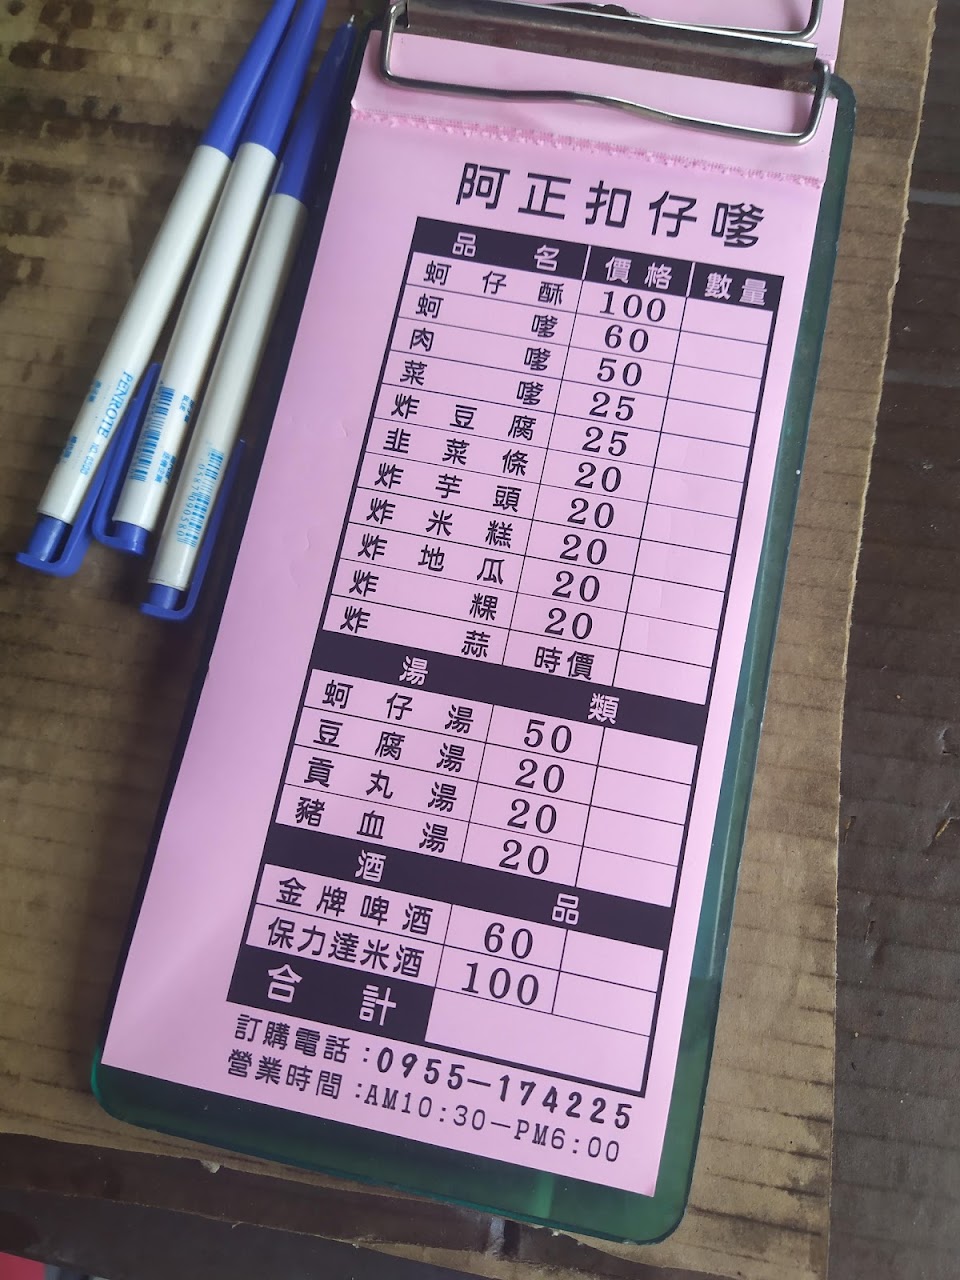 阿正扣仔嗲
品名 價格 數量
蚵仔酥 100
蚵嗲 60
肉嗲 50
菜嗲 25
炸豆腐 25
韭菜條 20
炸芋頭 20
炸米糕 20
炸地瓜 20
炸粿 20
炸蒜 時價
湯類
蚵仔湯 50
豆腐湯 20
貢丸湯 20
豬血湯 20
酒品
金牌啤酒 60
保力達米酒 100
合計
訂購電話:0955-174225
營業時間:AM10:30-PM6:00
PENROTE